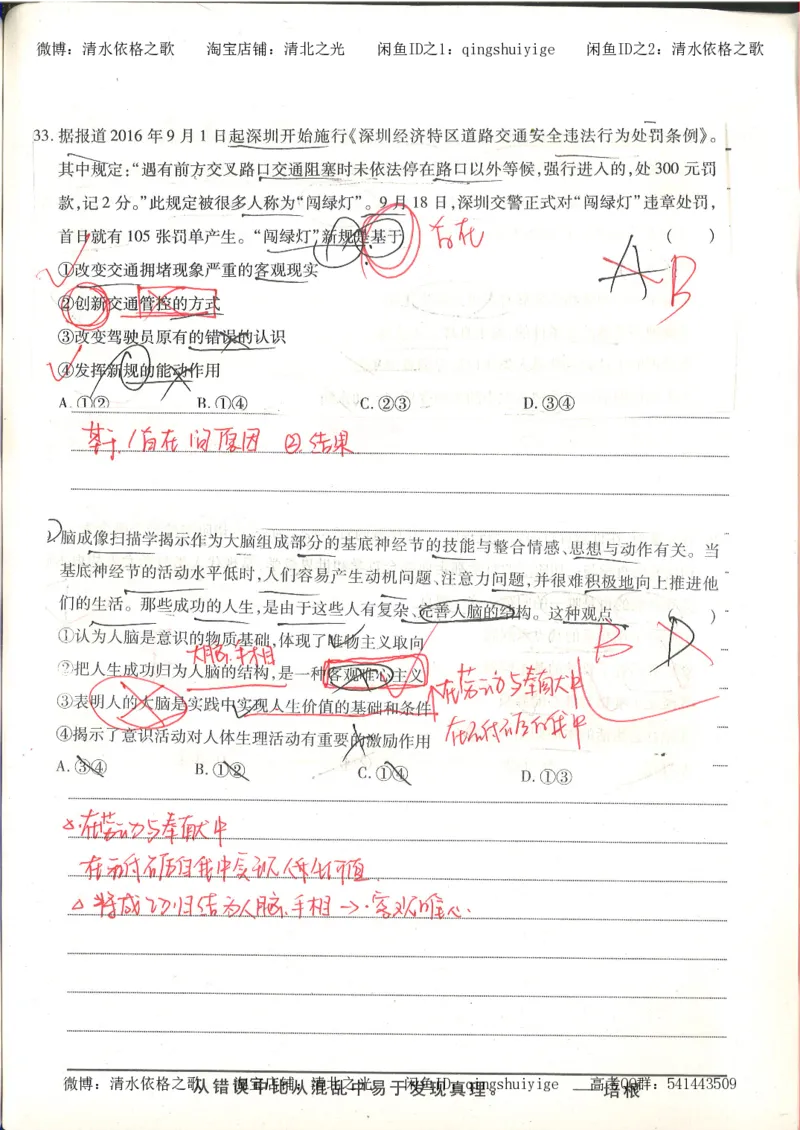 微博：清水依格之歌 淘宝店铺：清北之光 闲鱼ID之1：qingshuiyige 闲鱼ID之2：清水依格之歌
33. 据报道2016年9月1日起深圳开始施行《深圳经济特区道路交通安全违法行为处罚条例》。
其中规定：“遇有前方交叉路口交通阻塞时未依法停在路口以外等候，强行进入的，处300元罚
款，记2分。”此规定被很多人称为“闯绿灯”。9月18日，深圳交警正式对“闯绿灯”违章处罚，
首日就有105张罚单产生。“闯绿灯”新规是基于 （ ）
旨在
A B
①改变交通拥堵现象严重的客观现实
②创新交通管控的方式
③改变驾驶员原有的错误的认识
④发挥新规的能动作用
A. ①② B. ①④ C. ②③ D. ③④
基于/旨在 问原因 ②.结果
脑成像扫描学揭示作为大脑组成部分的基底神经节的技能与整合情感、思想与动作有关。当
基底神经节的活动水平低时，人们容易产生动机问题、注意力问题，并很难积极地向上推进他
们的生活。那些成功的人生，是由于这些人有复杂、完善人脑的结构。这种观点 （ ）
B D
①认为人脑是意识的物质基础，体现了唯物主义取向
大脑.手相
②把人生成功归为人脑的结构，是一种客观唯心主义
在劳动与奉献中
③表明人的大脑是实践中实现人生价值的基础和条件
在砥砺自我中
④揭示了意识活动对人体生理活动有重要的激励作用
A. ③④ B. ①② C. ①④ D. ①③
在劳动与奉献中
在砥砺自我中实现人生价值
将成功归结为人脑.手相→.客观唯心.
微博：清水依格之歌 淘宝店铺：清北之光 闲鱼ID：qingshuiyige 高考QQ群：541443509
从错误中比从混乱中易于发现真理。 ——培根